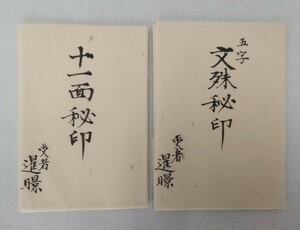 五字
文殊秘印
受者
暹暻
十一面秘印
受者
暹暻